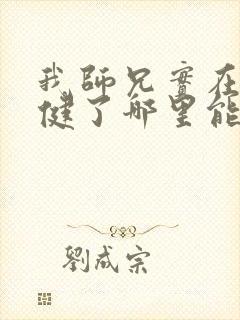 我師兄實在
健了哪里能
劉成宗